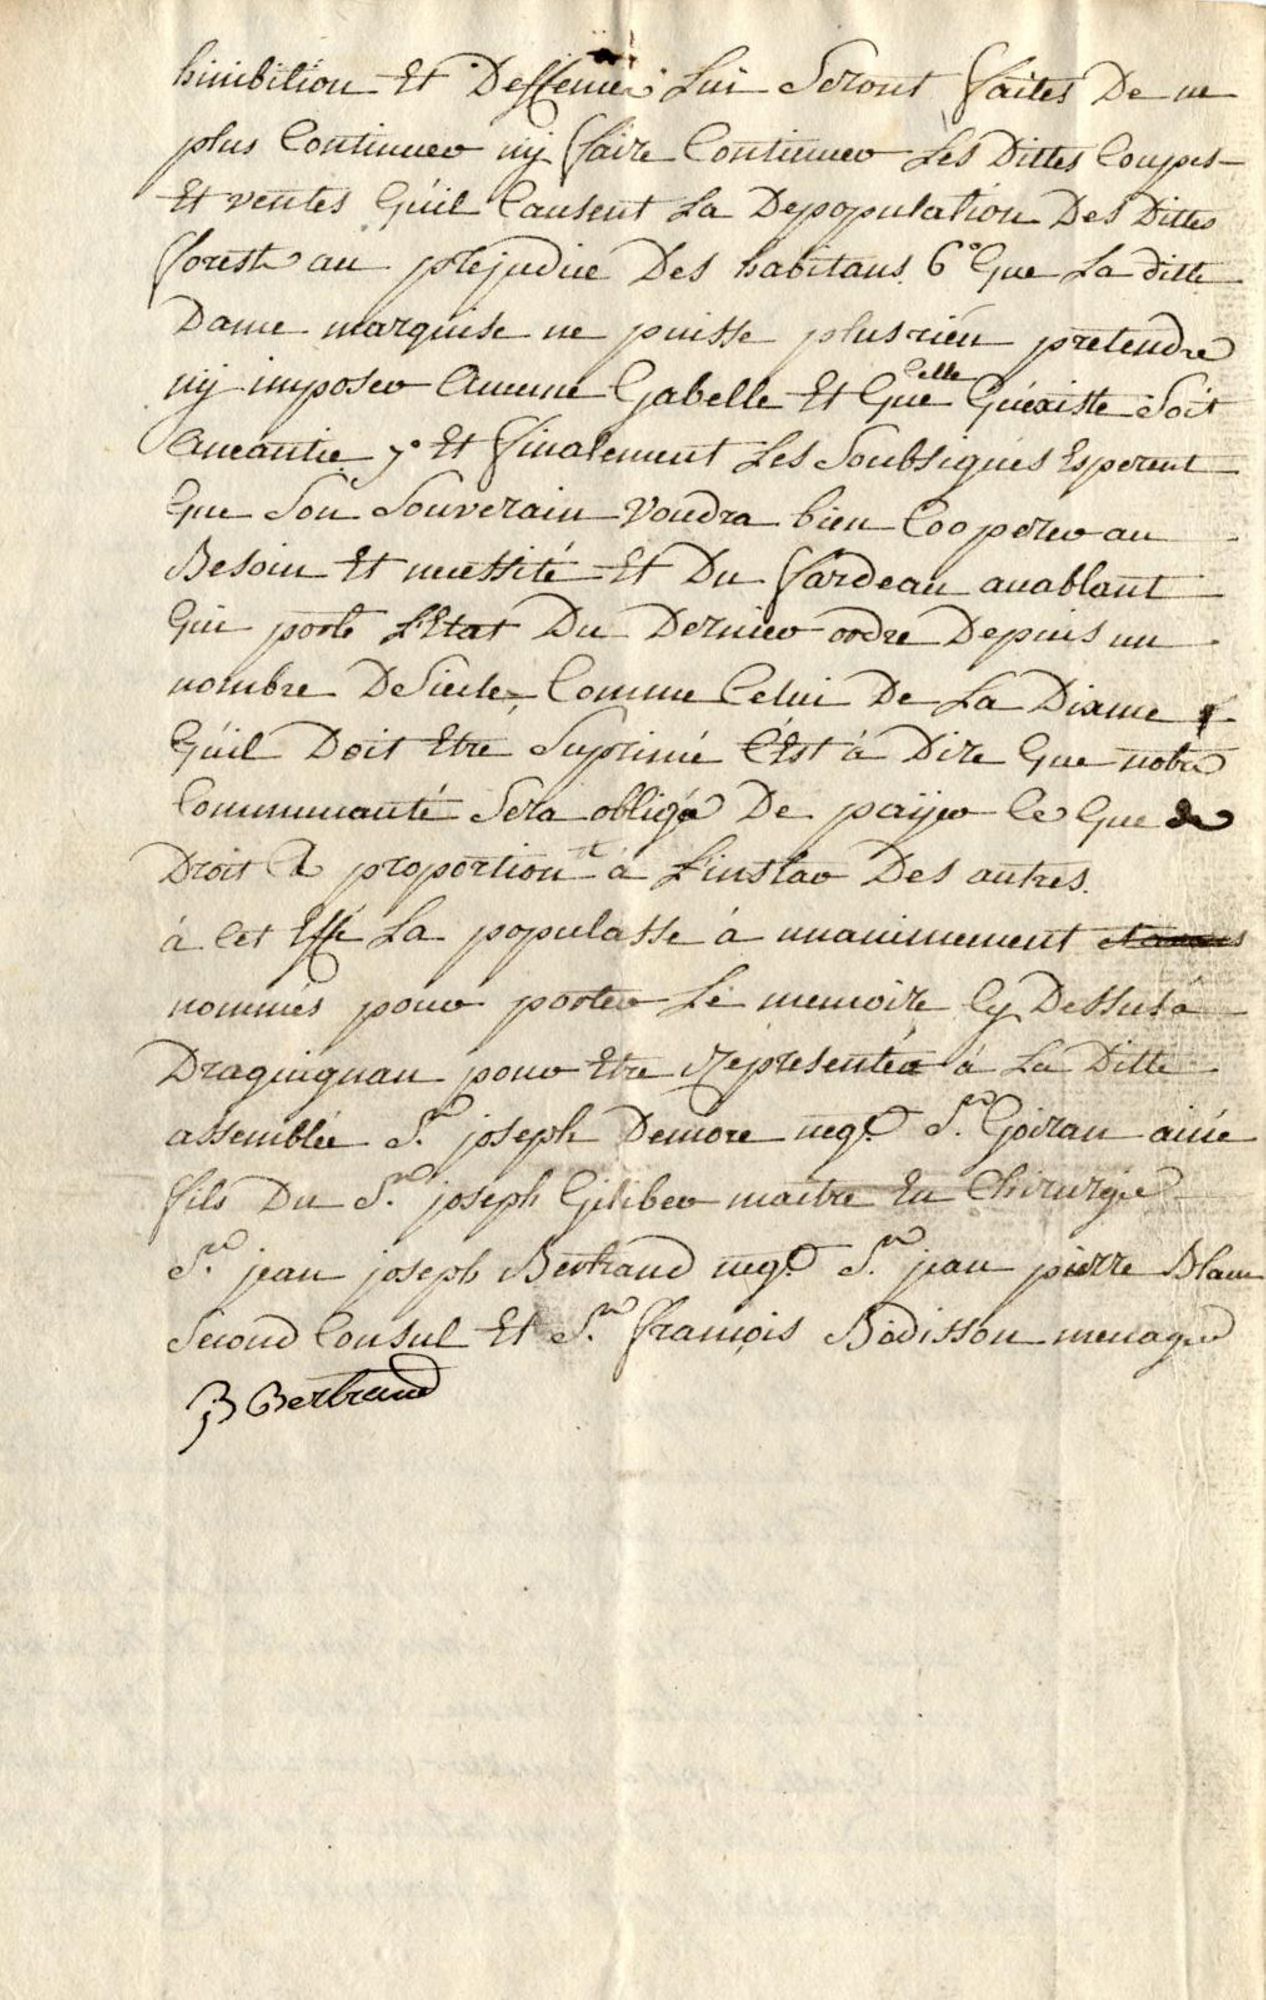 hinibition Et Deffence Lui Seront ffaites De ne
plus Continuer nÿ ffaire Continuer Les Dittes Coupes
Et ventes Qu'il Causent La Depopulation Des Dittes
fforest au préjudice Des habitans. 6° Que La ditte
Dame marquise ne puisse plus rién pretendre
nÿ imposer Aucune Gabelle Et Que Celle Qu'éxiste Soit
Aneantie 7° Et ffinalement Les Soubsignés Esperent
Que Son Souverain Voudra bien Cooperer au
Besoin Et necessité Et Du ffardeau acablant
Qui porte L'Etat Du Dernier ordre Depuis un
nombre De Siecle, Comme Celui De La Dixme
Qu'il Doit Etre Suprimé C'Est à Dire Que notre
Communauté Sera obligée De païjer Ce Que de
Droit A proportion et à L'instar Des autres.
à Cet Effé La populasse à unanimement
nommés pour porter Le memoire Cy Dessus à
Draguignan pour Etre Représentée à La Ditte
assemblée Sr. joseph Demore negt. Sr. Goiran ainé
ffils Du Sr. joseph Giliber maitre En Chirurgie
Sr. jean joseph Bertrand negt. Sr. jean pierre Blanc
Second Consul Et Sr. ffrançois Bodisson menager
JB Bertrand